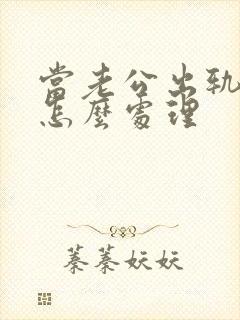 當老公出軌
怎麼處理
蓁蓁妖妖